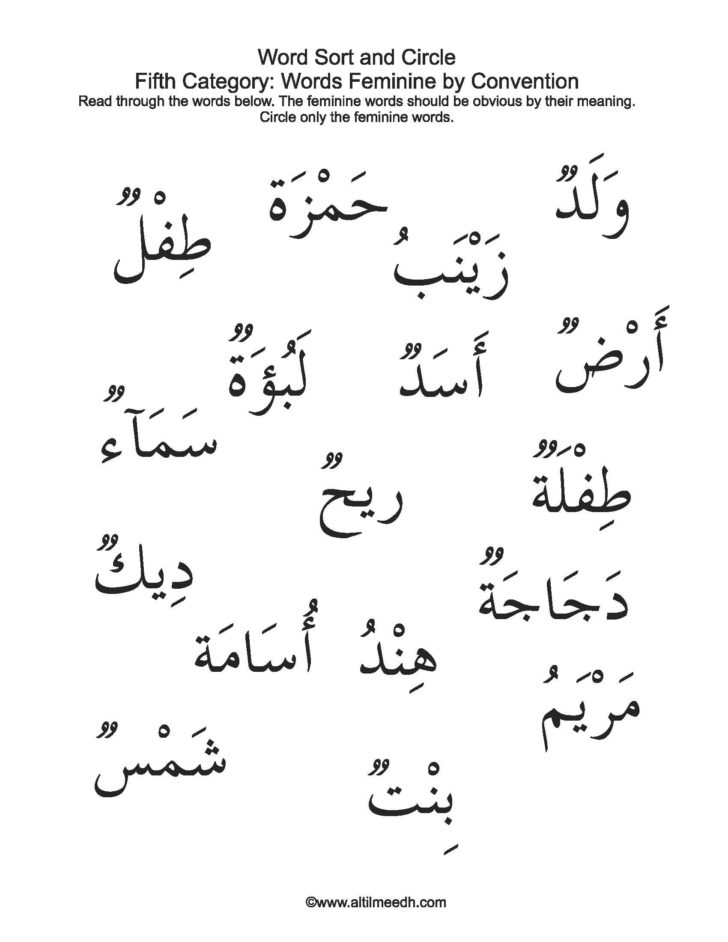 Word Sort and Circle
Fifth Category: Words Feminine by Convention
Read through the words below. The feminine words should be obvious by their meaning.
Circle only the feminine words.
وَلَدٌ
حَمْزَة
طِفْلٌ
زَيْنَبُ
أَرْضٌ
أَسَدٌ
لَبُؤَةٌ
سَمَآءٌ
طِفْلَةٌ
ريحٌ
دِيكٌ
دَجَاجَةٌ
هِنْدُ
أُسَامَة
مَرْيَمُ
شَمْسٌ
بِنْتٌ
©www.altilmeedh.com